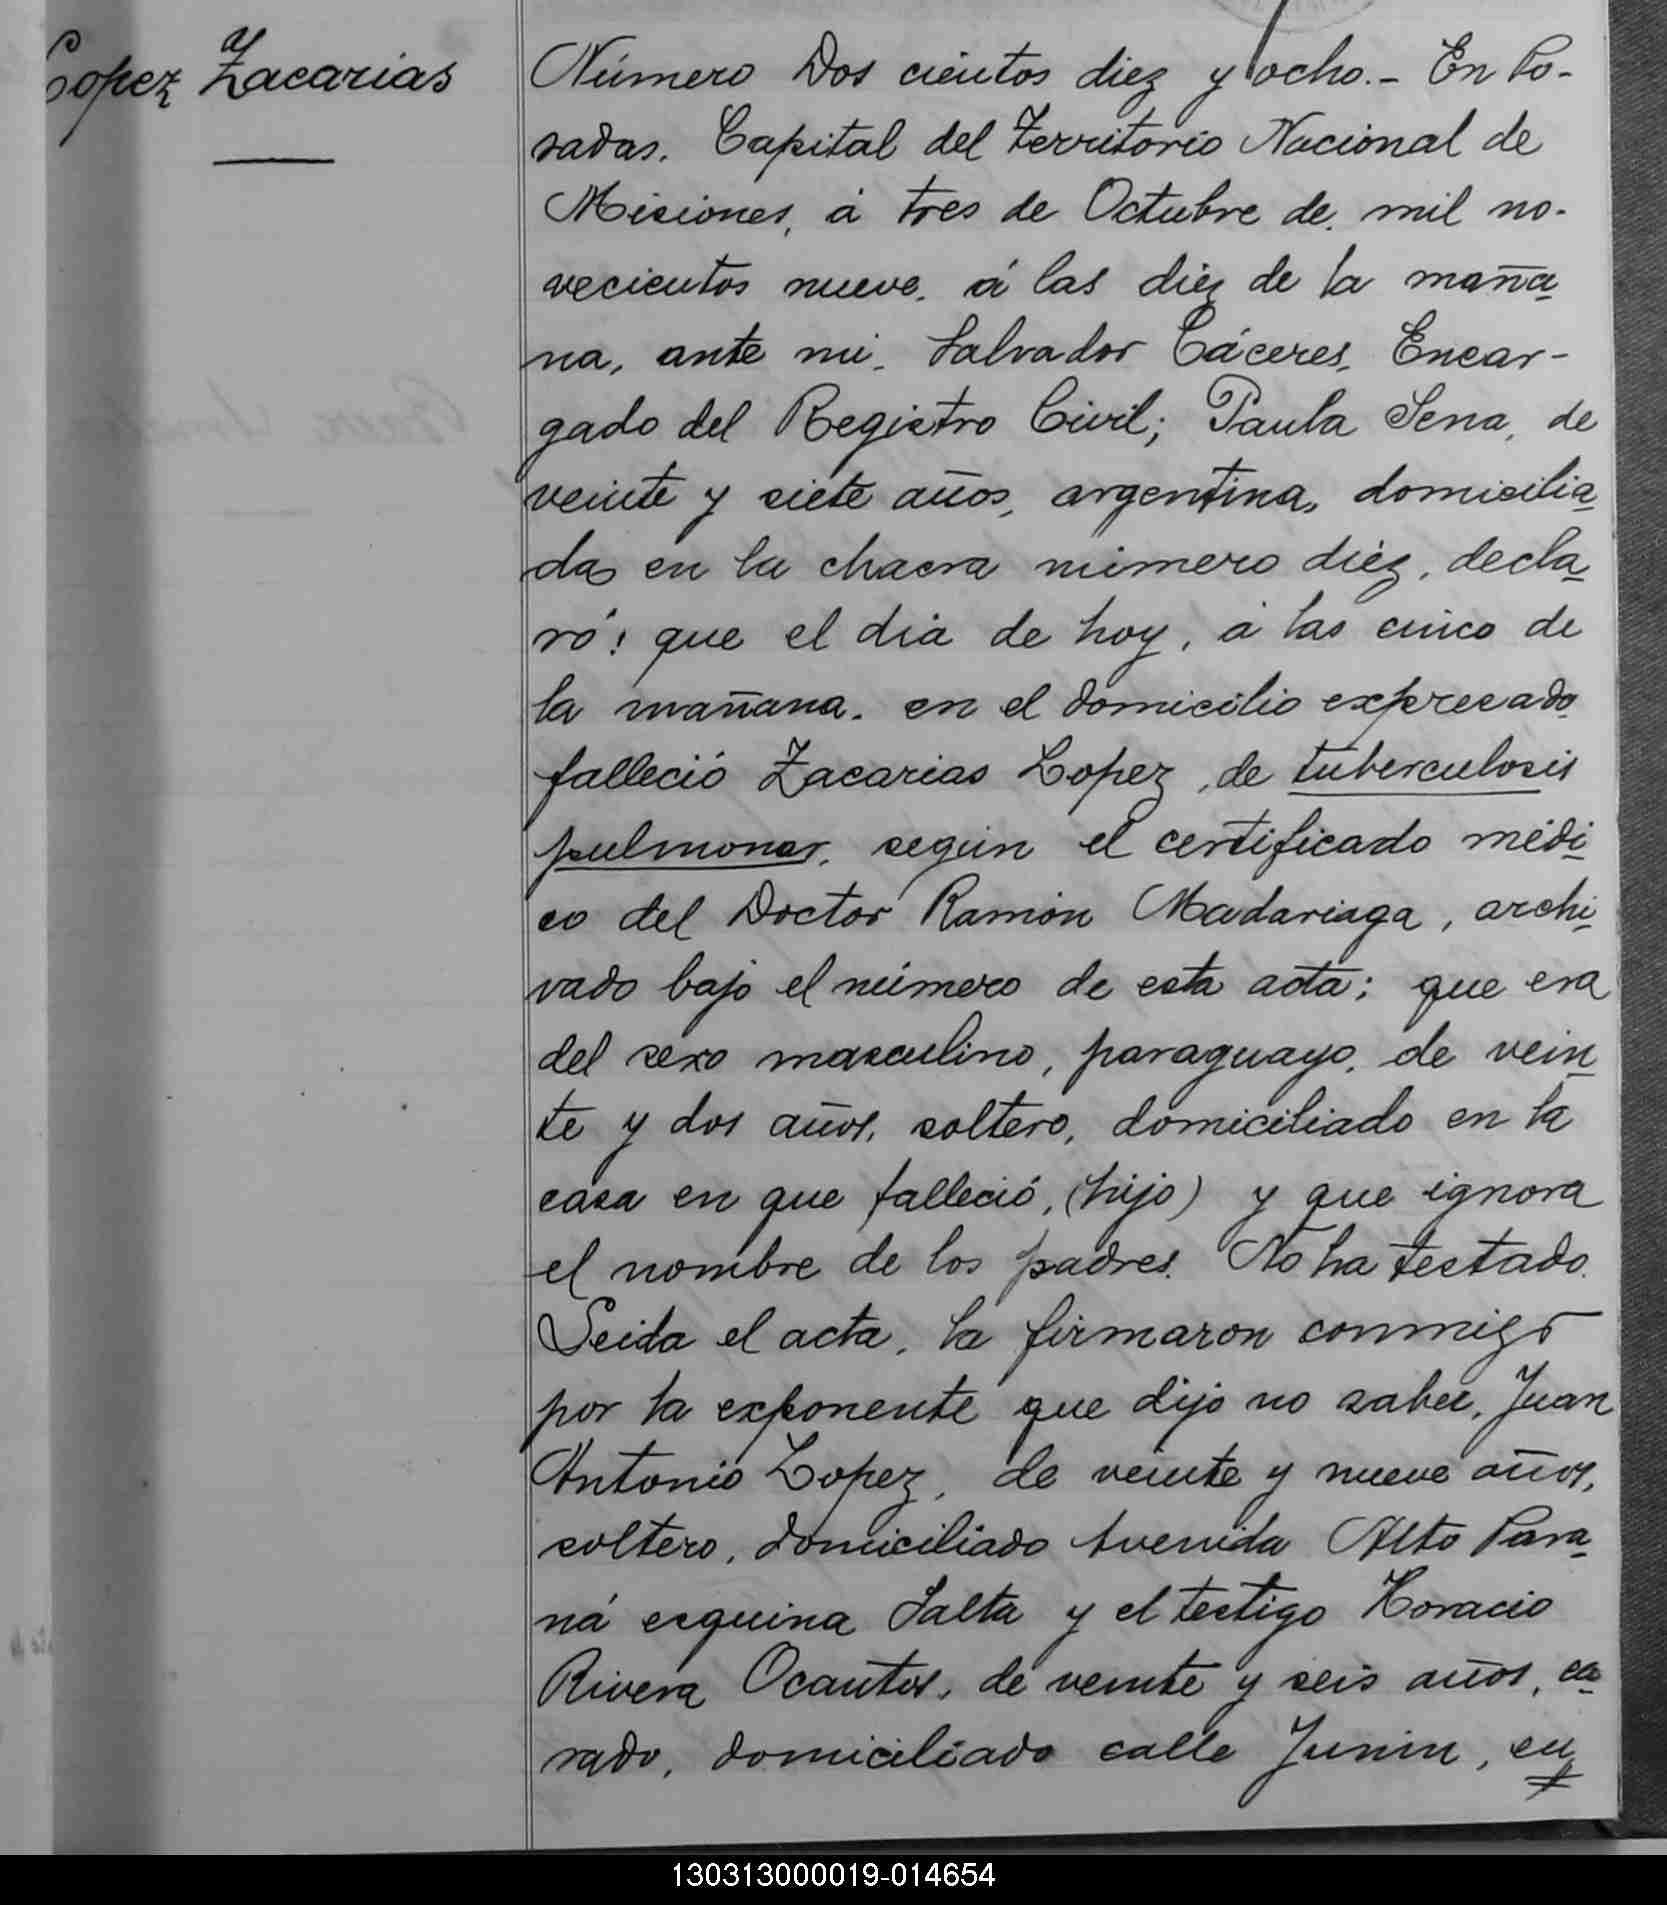 Lopez Zacarias
Número Dos cientos diez y ocho.- En Po-
sadas, Capital del Territorio Nacional de
Misiones, á tres de Octubre de, mil no-
vecientos nueve, á las diez de la maña
na, ante mi, Salvador Cáceres, Encar-
gado del Registro Civil; Paula Sena, de
veinte y siete años, argentina, domicilia
da en la chacra número diéz, decla
ró: que el dia de hoy, á las cinco de
la mañana, en el domicilio expresado
falleció Zacarias Lopez, de tuberculosis
pulmonar, según el certificado médi
co del Doctor Ramón Madariaga, archi
vado bajo el número de esta acta; que era
del sexo masculino, paraguayo, de vein
te y dos años, soltero, domiciliado en la
casa en que falleció, (hijo) y que ignora
el nombre de los padres. No ha testado.
Leida el acta, la firmaron conmigo
por la exponente que dijo no saber, Juan
Antonio Lopez, de veinte y nueve años,
soltero, domiciliado Avenida Alto Para
ná esquina Salta y el testigo Horacio
Rivera Ocantos, de veinte y seis años, ca
sado, domiciliado calle Junin, en
130313000019-014654